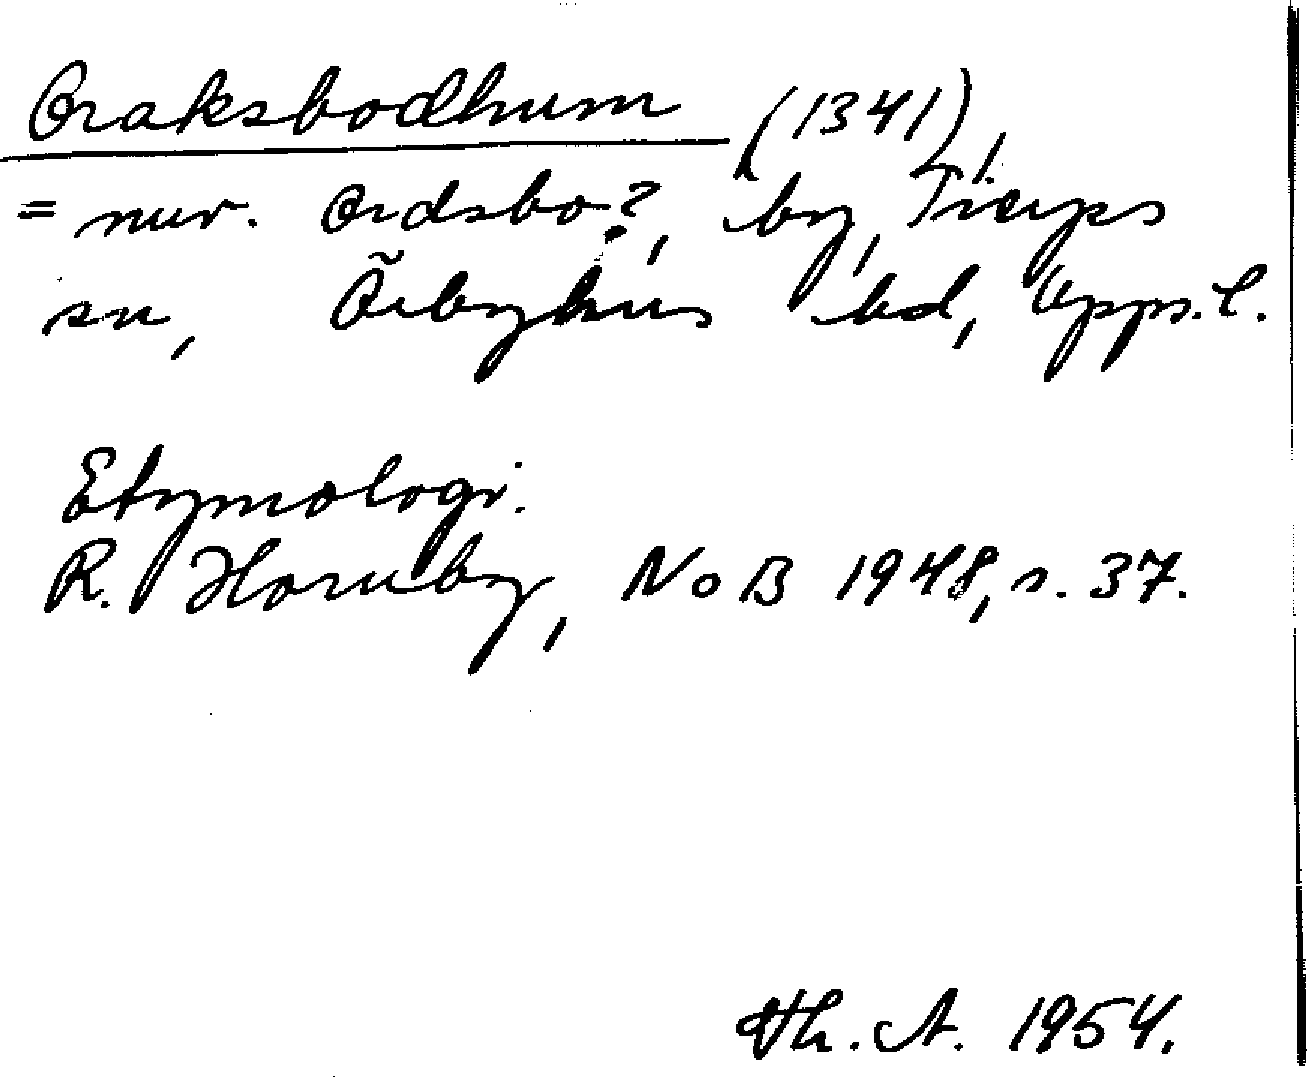 Oraksbodhum (1341),
= nuv. Ordsbo?, by, Tierps
sn, Örbyhus hd, Upps. l.
Etymologi.
R. Hornby, NoB 1948, s. 37.
Th. A. 1954.